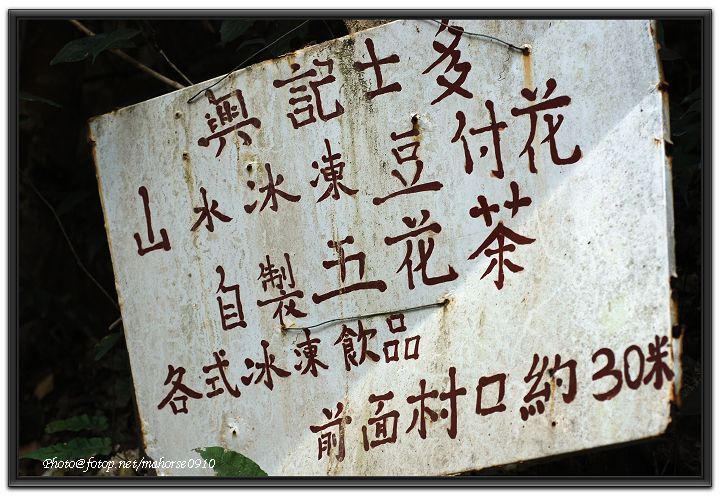 興記士多
山水冰凍豆付花
自製五花茶
各式冰凍飲品
前面村口約30米
Photo@fotop.net/mahorse0910